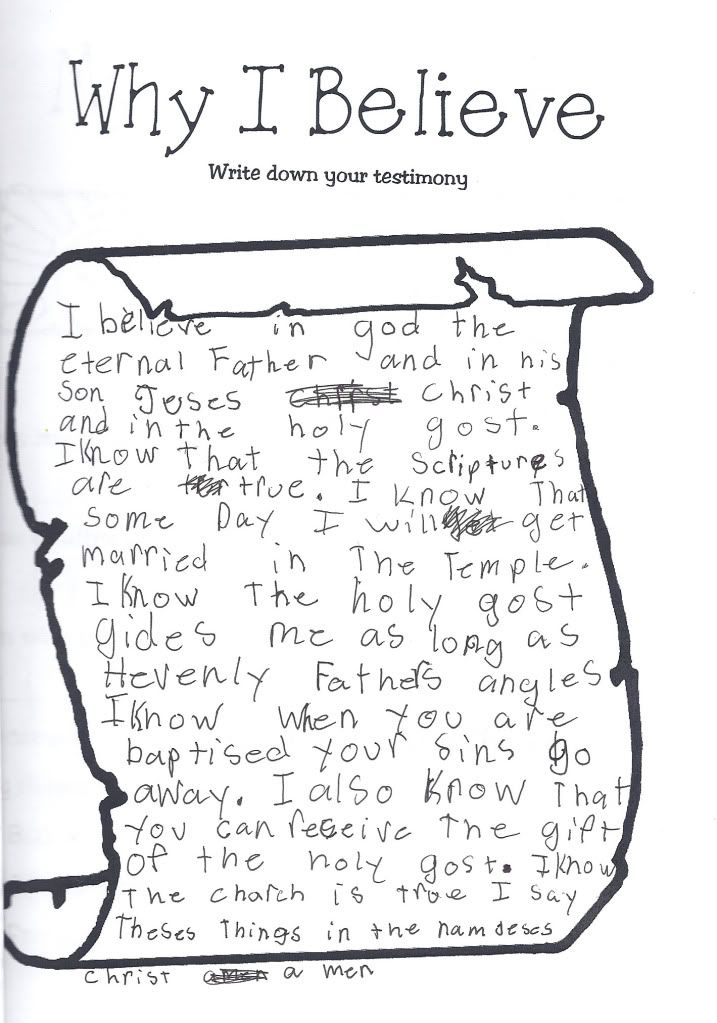 Why I Believe
Write down your testimony
I believe in god the
eternal Father and in his
son Jeses Christ
and in the holy gost.
I know That the Scriptures
are true. I know That
some Day I will get
married in The Temple.
I know The holy gost
gides me as long as
Hevenly Fathers angles
I know when you are
baptised your sins go
away. I also know That
you can reseive The gift
of the holy gost. I know
The charch is true I say
Theses Things in the nam Jeses
christ a men